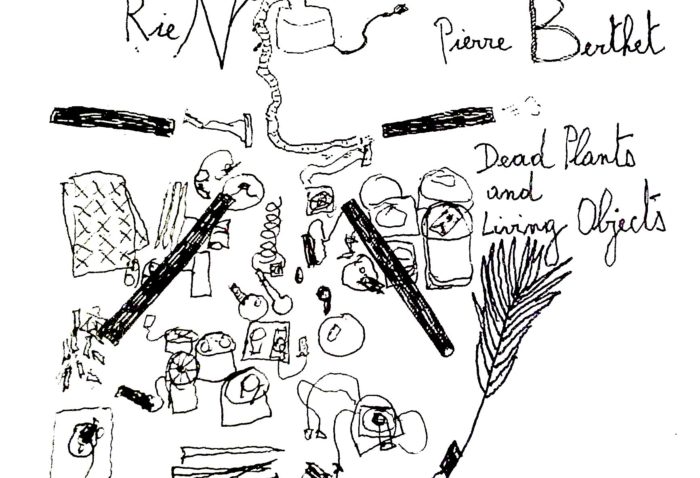 Rie N
Pierre Berthet
Dead Plants
and
Living Objects